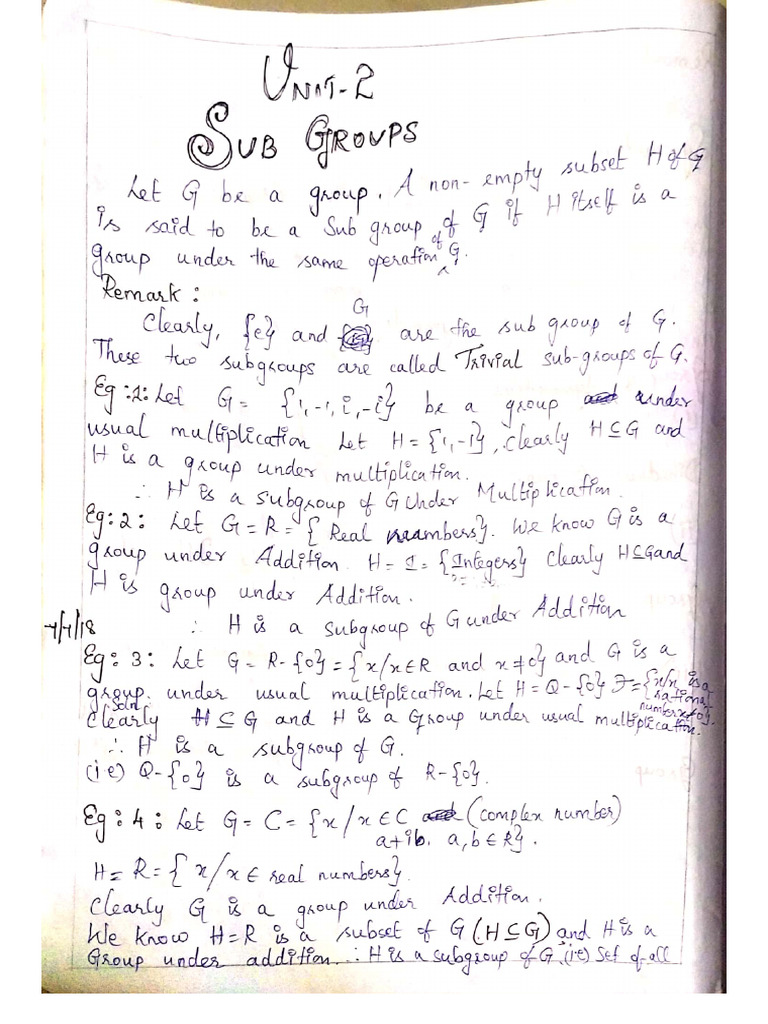 UNIT-2
SUB GROUPS
Let G be a group. A non-empty subset H of G
is said to be a Sub group of G if H itself is a
group under the same operation of G.
Remark:
Clearly, {e} and G are the sub group of G.
These two subgroups are called Trivial sub-groups of G.
Eg:1: Let G = {1, -1, i, -i} be a group under
usual multiplication Let H = {1, -1}, clearly H⊆G and
H is a group under multiplication.
∴ H is a subgroup of G under Multiplication.
Eg:2: Let G = R = { Real numbers}. We know G is a
group under Addition. H = I = {Integers} clearly H⊆G and
H is group under Addition.
4/7/18 ∴ H is a subgroup of G under Addition
Eg: 3: Let G = R-{0} = {x/x∈R and x≠0} and G is a
group. under usual multiplication. Let H = Q-{0} = {x/x is a
rational
number x≠0}.
Soln
Clearly H⊆G and H is a Group under usual multiplication.
∴ H is a subgroup of G.
(ie) Q-{0} is a subgroup of R-{0}.
Eg: 4: Let G = C = {x/x∈C (complex number)
a+ib. a,b∈R}.
H = R = { x/x∈ real numbers}.
Clearly G is a group under Addition.
We know H=R is a subset of G (H⊆G) and H is a
Group under addition. ∴ H is a subgroup of G. (ie) Set of all